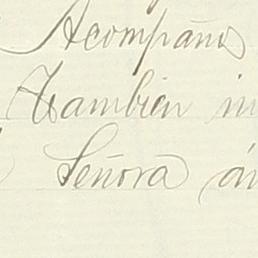 Acompaño
Tambien
Señora